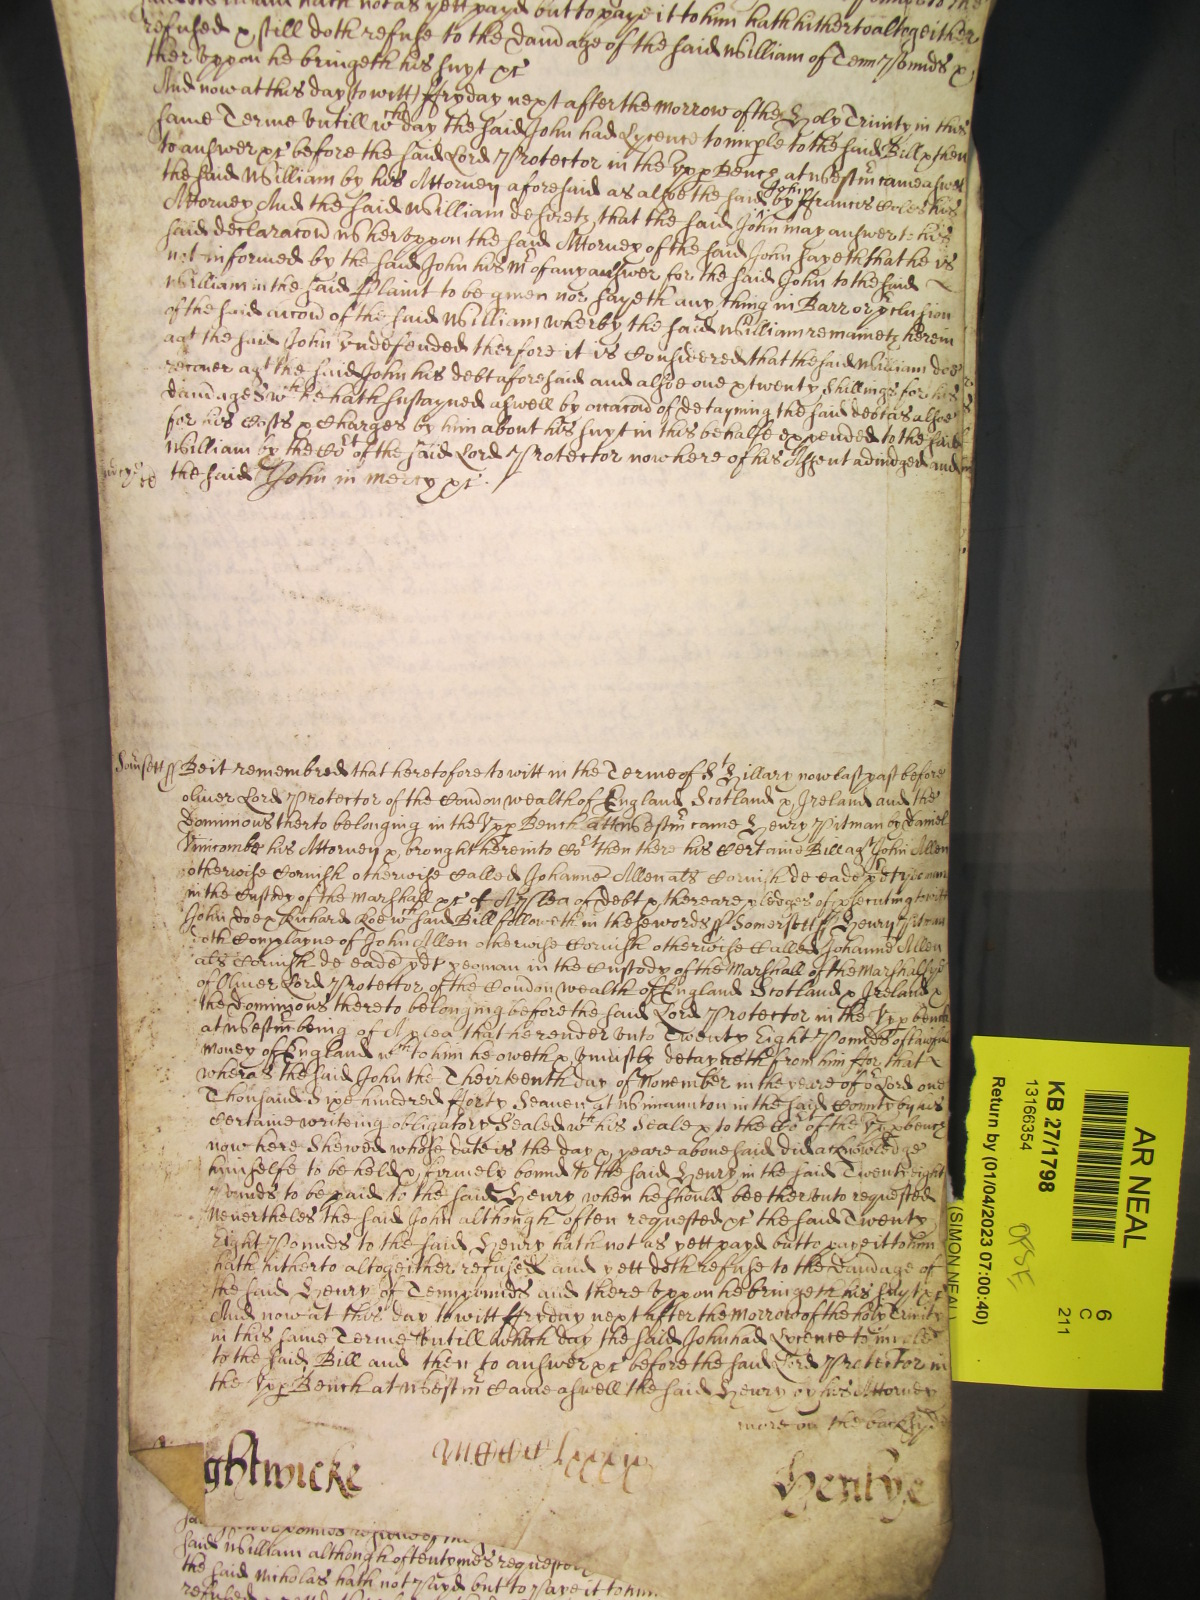 refused & still doth refuse to the damage of the said William of Tenn Pounds &
ther vppon he bringeth his suyt &c
And now at this day (to witt) ffryday next after the morrow of the Holy Trinity in this
same Terme vntill wch day the said John had Lycence to imple to the said Bill & then
to answer &c before the said Lord Protector in the Vpp Bench at Westmr came aswell
the said William by his Attorney aforesaid as alsoe the said John by ffrancis Coles his
Attorney And the said William desireth that the said John may answer to his
said declaracon Whervppon the said Attorney of the said John sayeth that he is
not informed by the said John his Mr of any answer for the said John to the said
William in the said Plaint to be given nor sayeth any thing in Barr or pclusion
of the said accon of the said William wherby the said William remaineth herein
agt the said John vndefended therfore it is Considered that the said William doe
recover agt the said John his debt aforesaid and alsoe one & twenty shillings for his
damages wch he hath sustayned aswell by occacon of detayning the said debt as alsoe
for his Costs & Charges by him about his suyt in this behalfe expended to the said
William by the Cort of the said Lord Protector now here of his Assent adiudged and
the said John in mercy &c.
Somsett ss Be it remembred that heretofore to witt in the Terme of St Hillary now last past before
Oliver Lord Protector of the Common wealth of England Scotland & Ireland and the
Dominions therto belonging in the Vpp Bench att Westmr came Henry Pitman by Daniel
Vinicombe his Attorney & brought here into Cort then there his Certaine Bill agt John Allen
otherwise Cornish otherwise Called Johannē Allen als Cornish de eadē pdt yeoman
in the Custody of the Marshall &c of A Plea of debt & there are pledges of psecuting to witt
John doe & Richard Roe wch said Bill followeth in these words ss Somersett ss Henry Pitman
doth Complayne of John Allen otherwise Cornish otherwise Called Johannē Allen
als Cornish de eadē pdt yeoman in the Custody of the Marshall of the Marshallsye
of Oliver Lord Protector of the Common wealth of England Scotland & Ireland &
the Dominions thereto belonging before the said Lord Protector in the Vpp bench
at Westmr being of A plea that he render vnto Twenty Eight Pounds of lawfull
money of England wch to him he oweth & vniustly detayneth from him ffor that
wheras the said John the Thirteenth day of November in the yeare of or Lord one
Thousand Sixe hundred fforty Seaven at in the said County by his
Certaine writeing obligatory Sealed wth his Seale & to the Cort of the Vpp bench
now here Shewed whose date is the day & yeare abovesaid did acknowledge
himselfe to be held & firmely bound to the said Henry in the said Twenty eight
Pounds to be paid to the said Henry when he should bee thervnto requested
Neverthelesse the said John although often requested &c the said Twenty
Eight Pounds to the said Henry hath not as yett payd but to paye it to him
hath hitherto altogeither refused and yett doth refuse to the damage of
the said Henry of Tenn pounds and there vppon he bringeth his suyt &c
And now at this day to witt ffryday next after the Morrow of the holy Trinity
in this same Terme vntill which day the said John had Lycence to imple
to the said Bill and then to answer &c before the said Lord Protector in
the Vpp Bench at Westmr Came aswell the said Henry by his Attorney
more on the backsyde
ghtwicke
Henlye
said William although oftentymes requested
the said Nicholas hath not Payd but to Paye it to him
AR NEAL
KB 27/1798
13166354
Return by (01/04/2023 07:00:40)
(SIMON NEAL)
6
C
211